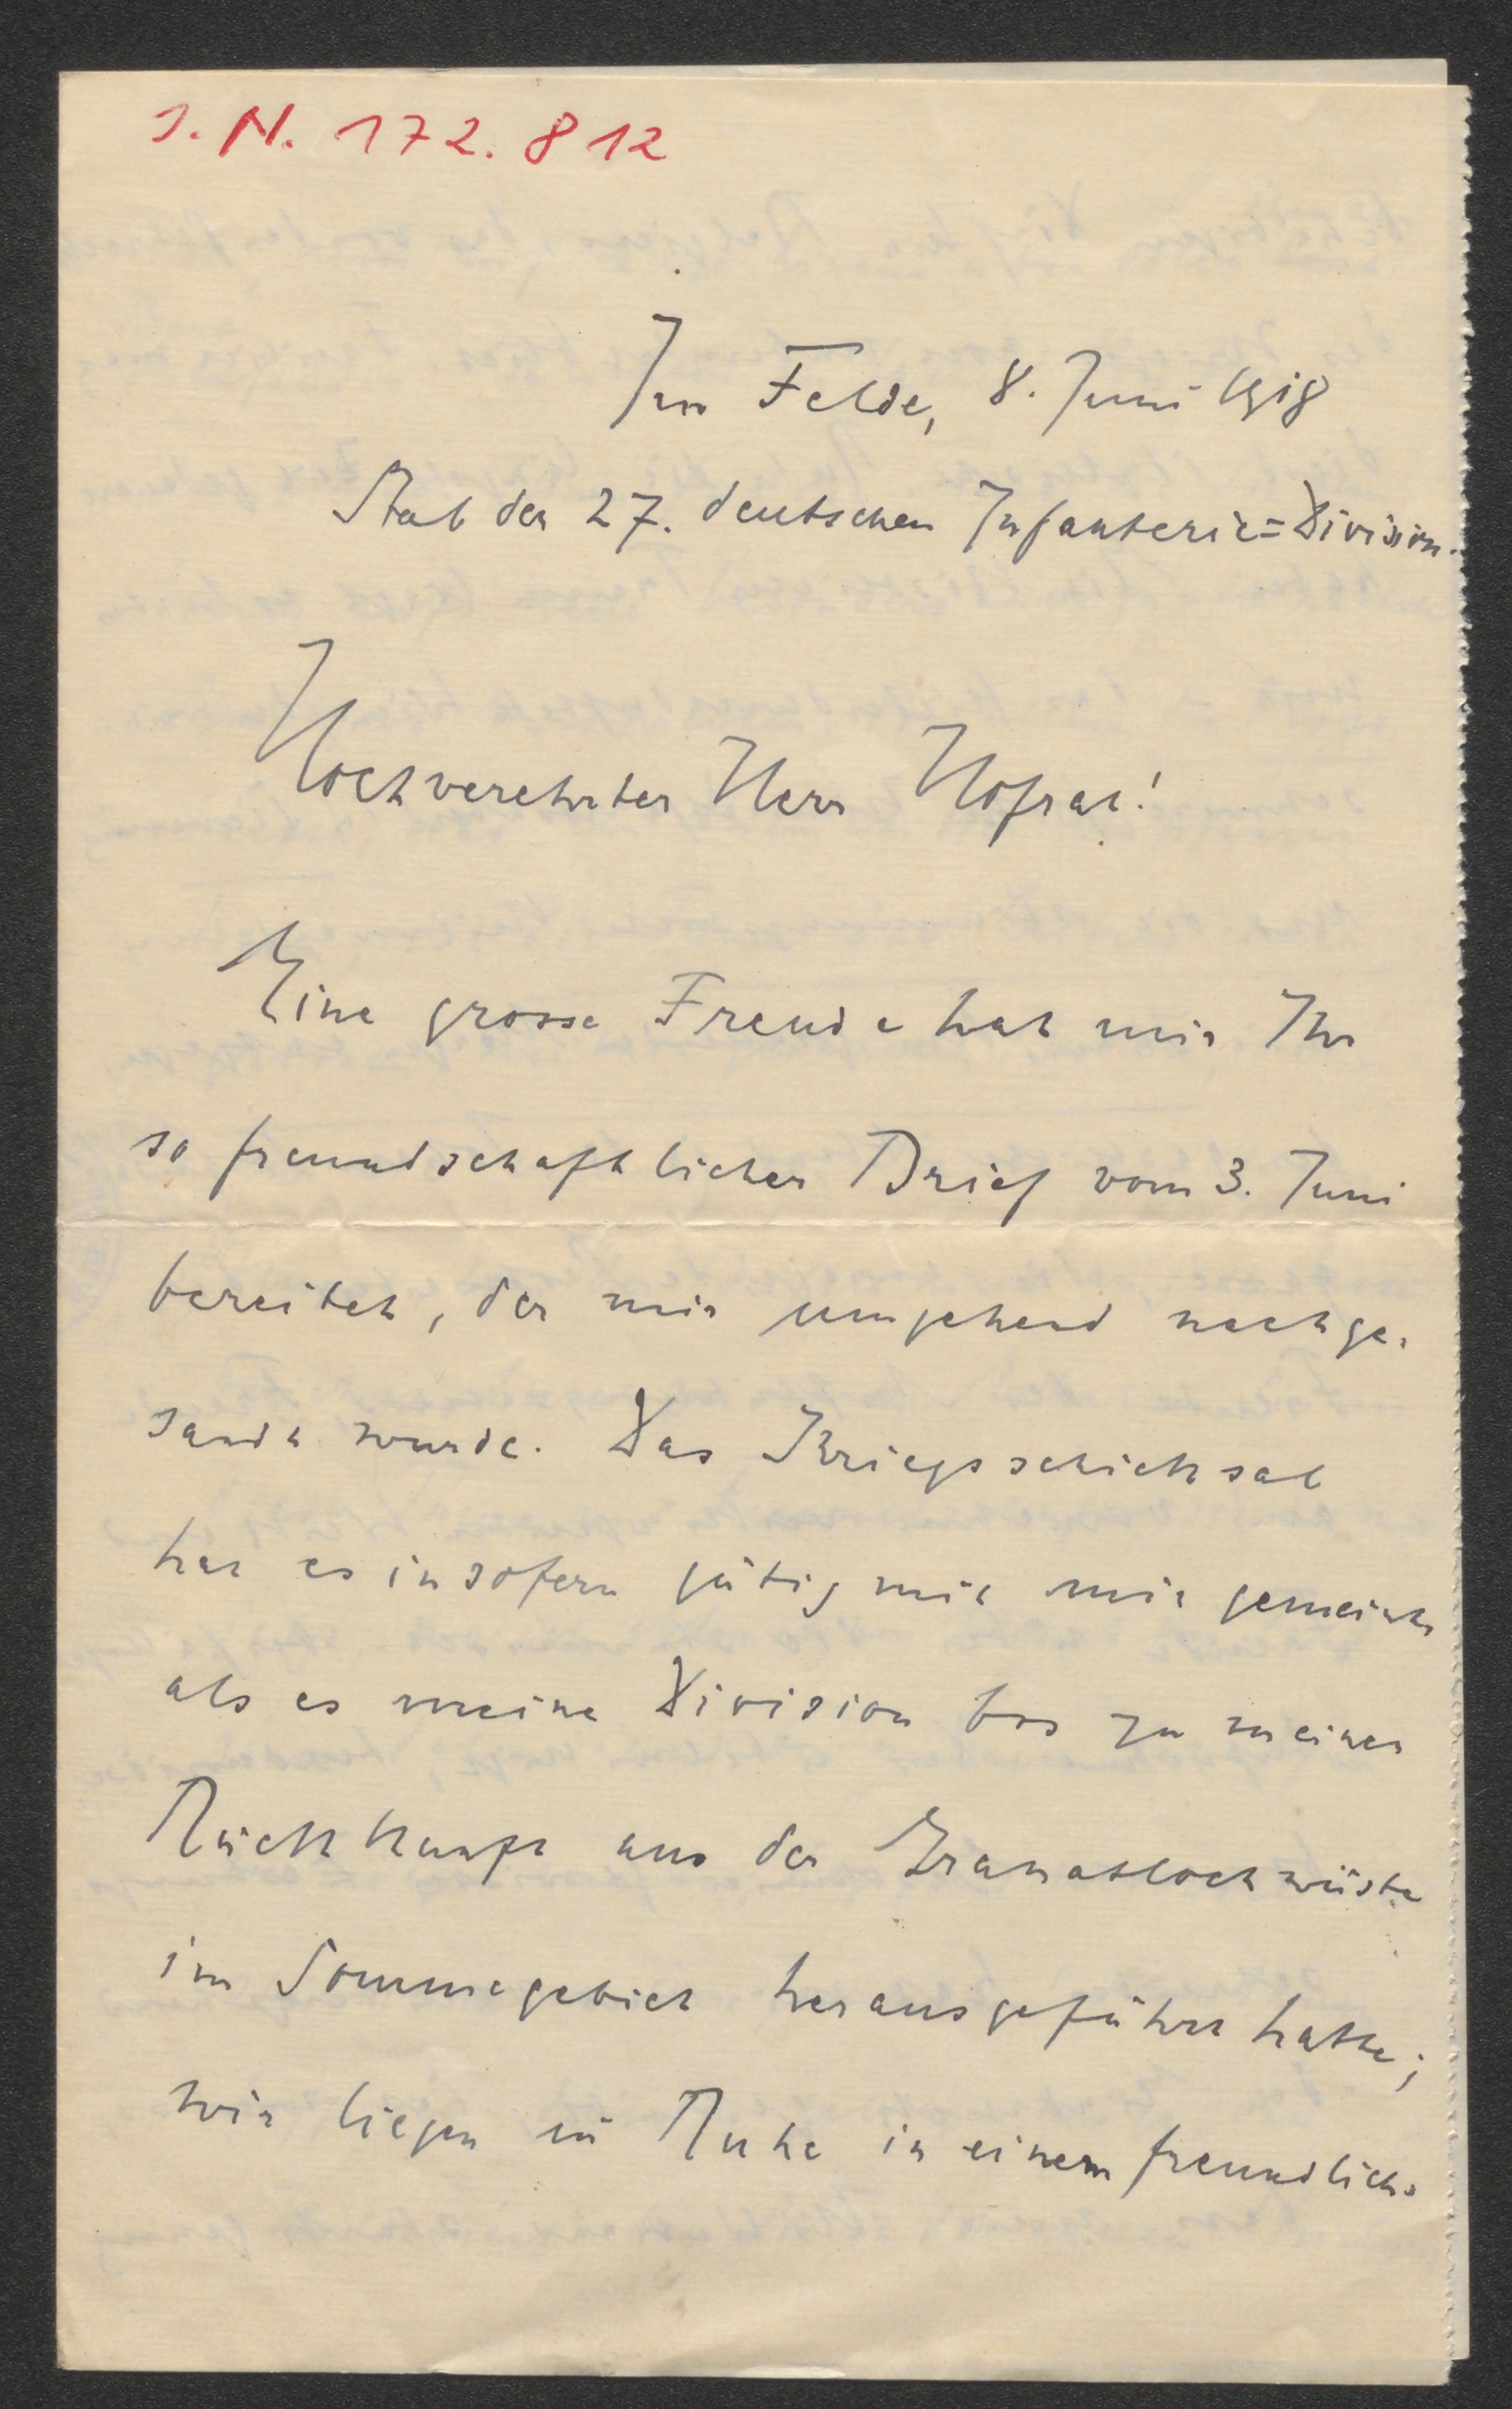 J. N. 172.812
Im Felde, 8. Juni 1918
Stab der 27. deutschen Infanterie=Division.
Hochverehrter Herr Hofrat!
Eine grosse Freude hat mir Ihr
so freundschaftlicher Brief vom 3. Juni
bereitet, der mir umgehend nachge-
sandt wurde. Das Kriegsschicksal
hat es insofern gütig mit mir gemeint
als es meine Division bis zu meiner
Rückkunft aus der Granatlochwüste
im Sommegebiet herausgeführt hatte;
wir liegen in Ruhe in einem freundlich-